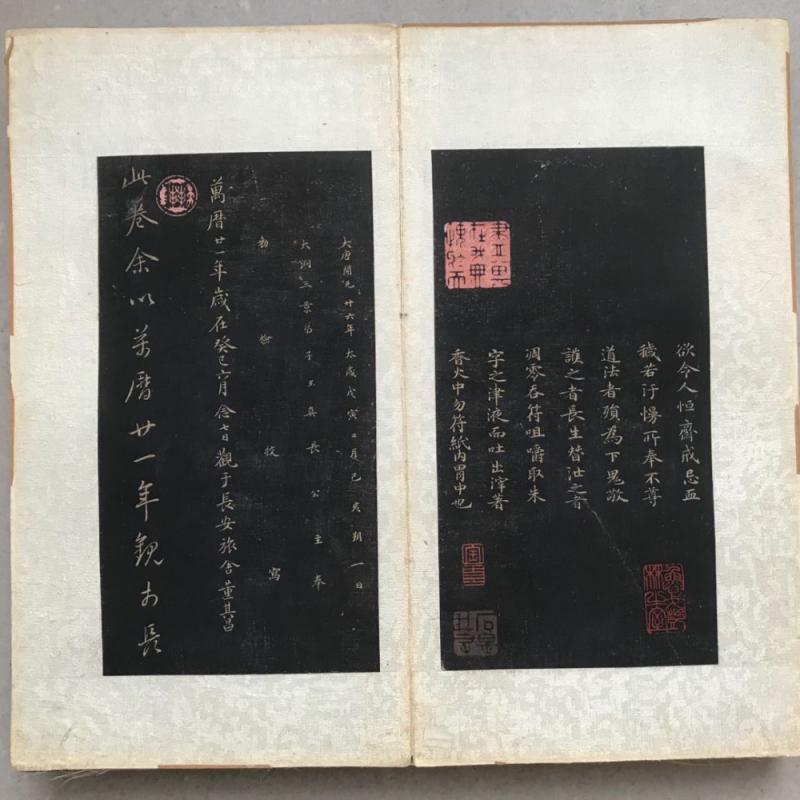 欲令人恒齋戒忌血
穢若汙慢所奉不尊
道法者殞為下鬼敬
護之者長生替泄之者
凋零吞符咀嚼取朱
字之津液而吐出滓著
香火中勿符紙內胃中也
大唐開元廿六年太歲戊寅二月己亥朔一日
大洞三景弟子玉真長公主奉
勅檢校寫
萬曆廿一年歲在癸巳六月念七日觀于長安旅舍董其昌
此卷余以萬曆廿一年觀于長